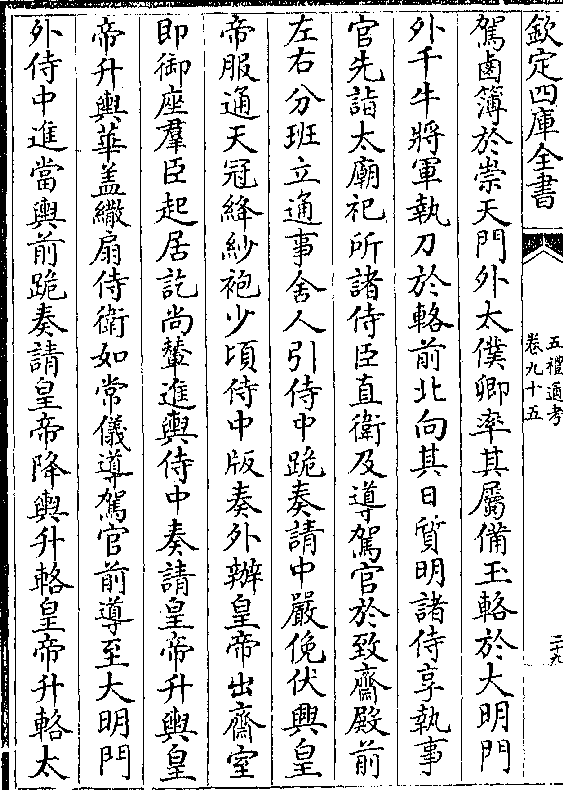 欽定四庫全書
五禮通考
卷九十五
二十九
駕鹵簿於崇天門外太僕卿率其屬備玉輅於大明門
外千牛將軍執刀於輅前北向其日質明諸侍享執事
官先詣太廟祀所諸侍臣直衛及導駕官於致齋殿前
左右分班立通事舍人引侍中跪奏請中嚴俛伏興皇
帝服通天冠絳紗袍少頃侍中版奏外辦皇帝出齋室
即御座羣臣起居訖尚輦進輿侍中奏請皇帝升輿皇
帝升輿華盖繖扇侍衛如常儀導駕官前導至大明門
外侍中進當輿前跪奏請皇帝降輿升輅皇帝升輅太